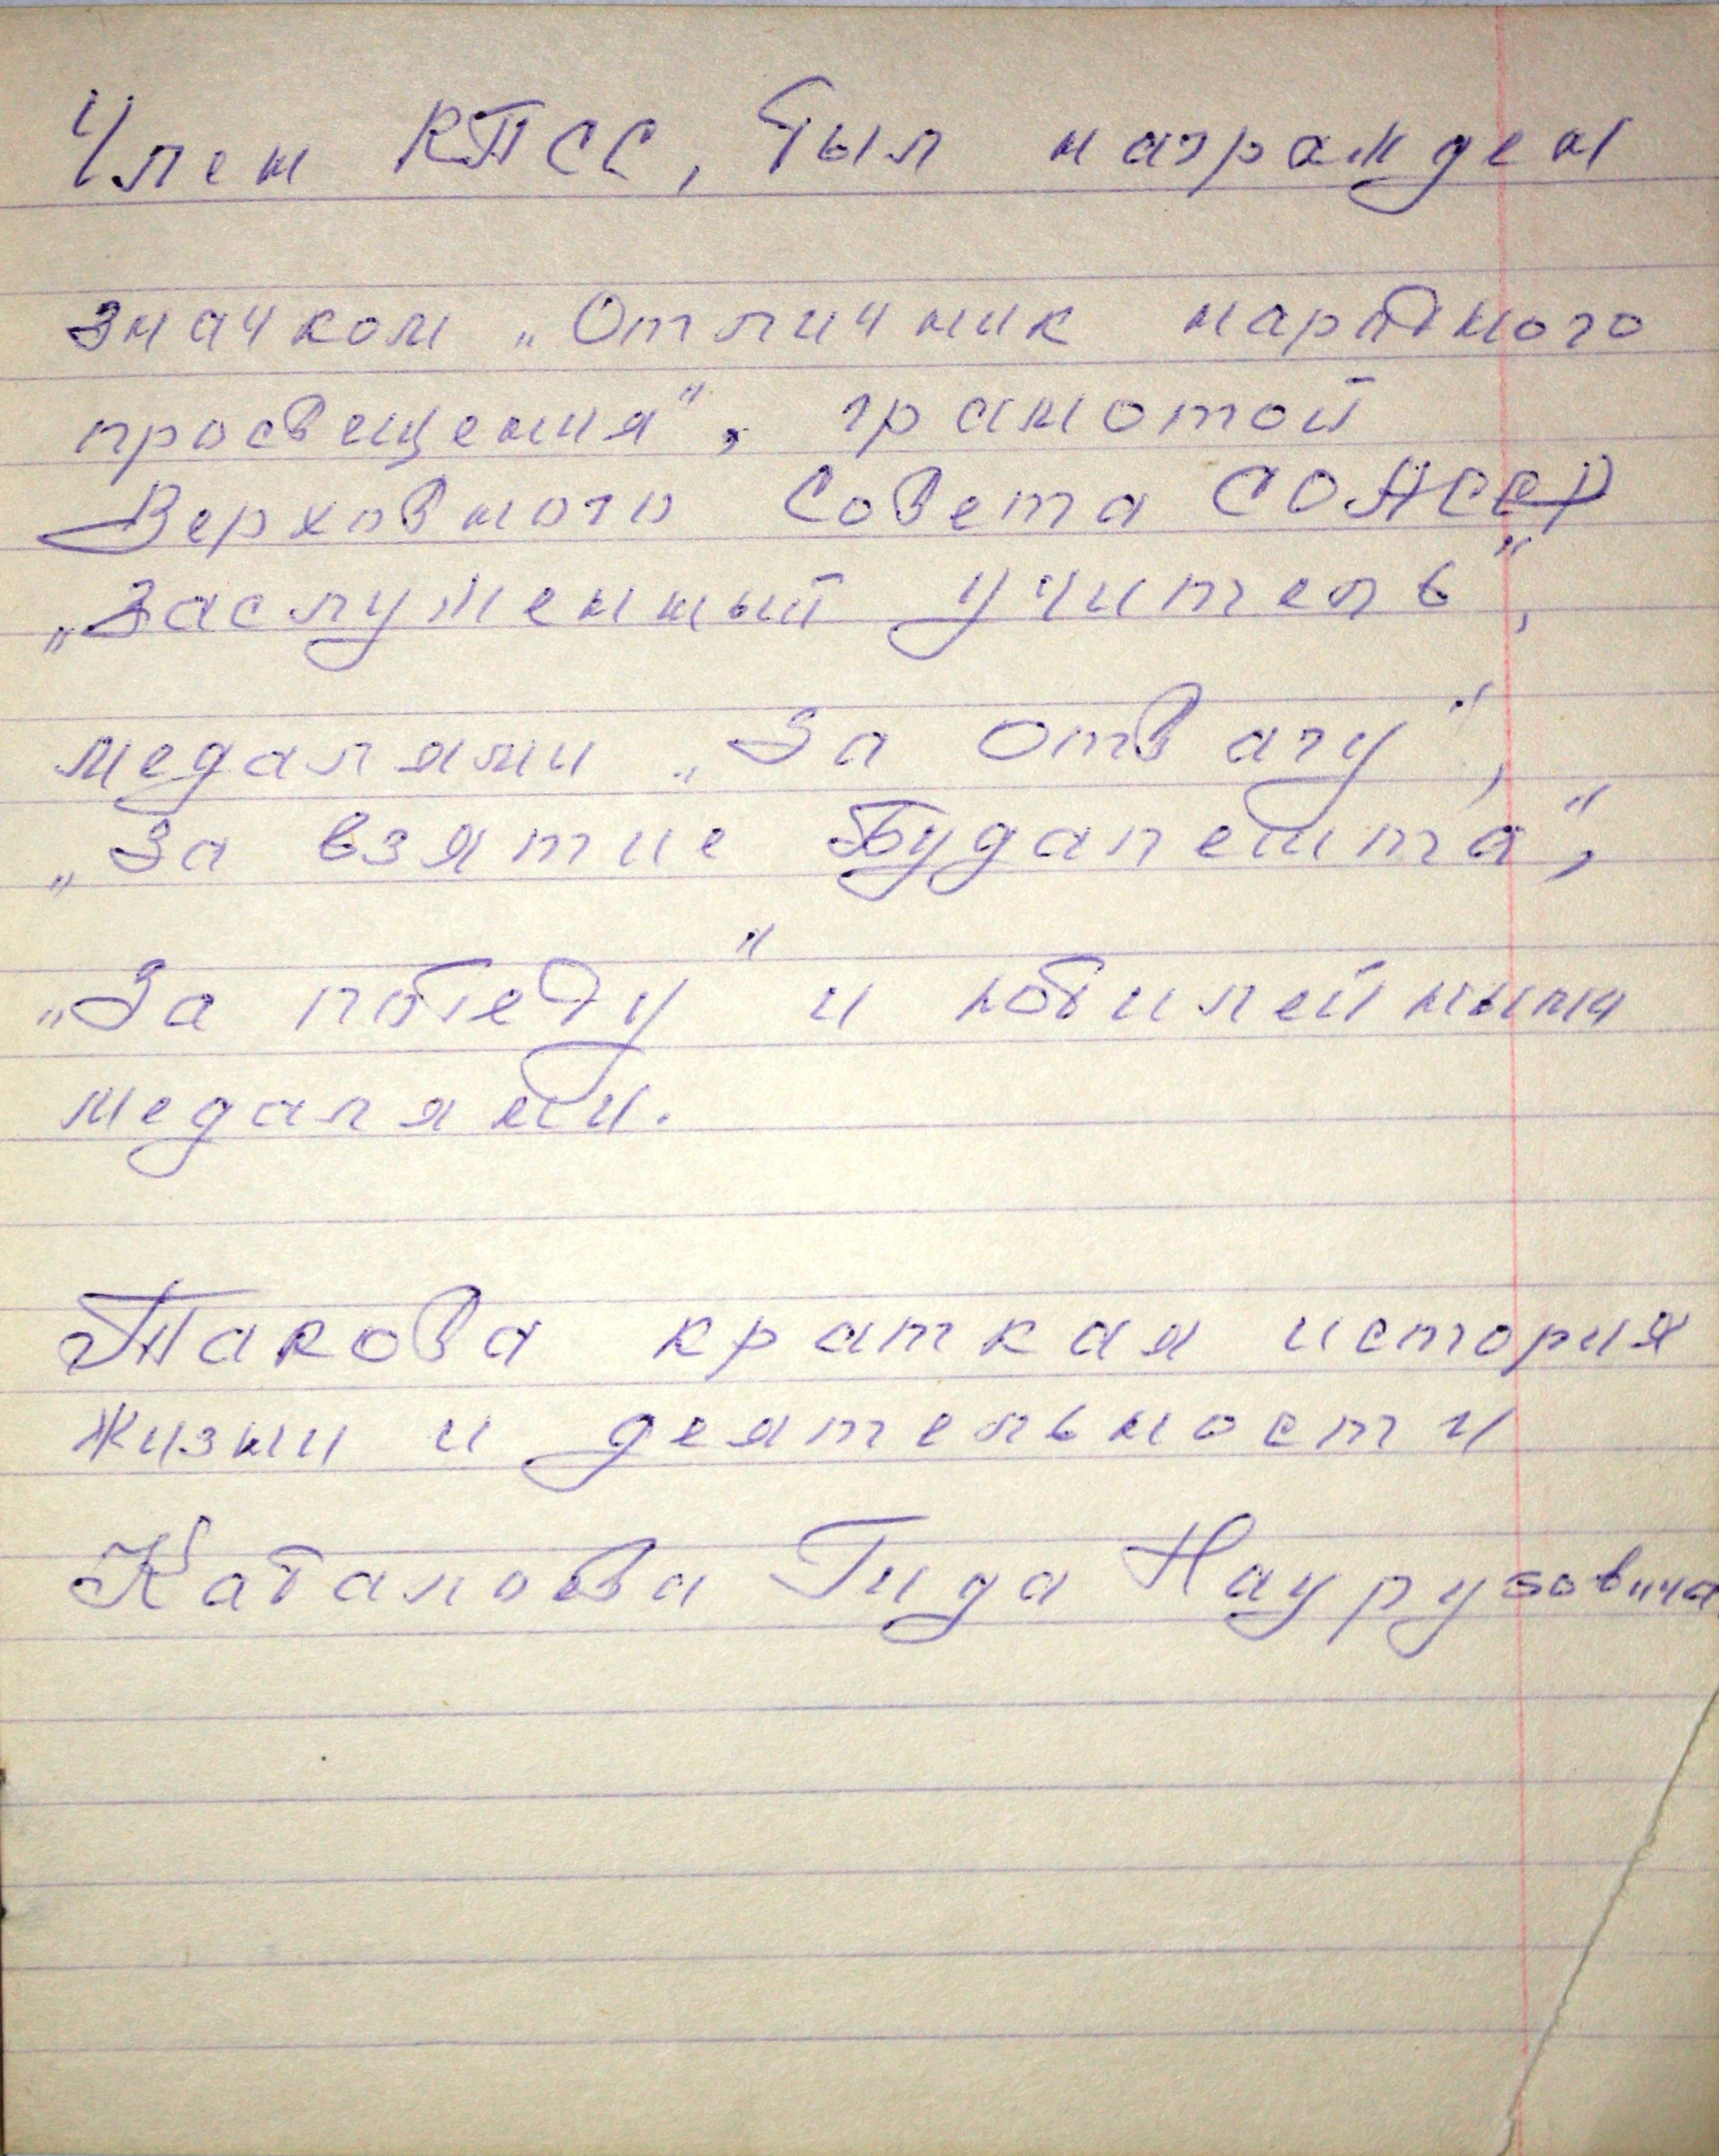 Член КПСС, был награжден
значком „Отличник народного
просвещения", грамотой
Верховного Совета СОАССР
„Заслуженный учитель",
медалями „За отвагу",
„За взятие Будапешта",
„За победу" и юбилейными
медалями.
Такова краткая история
жизни и деятельности
Кабалоева Гида Наурузовича